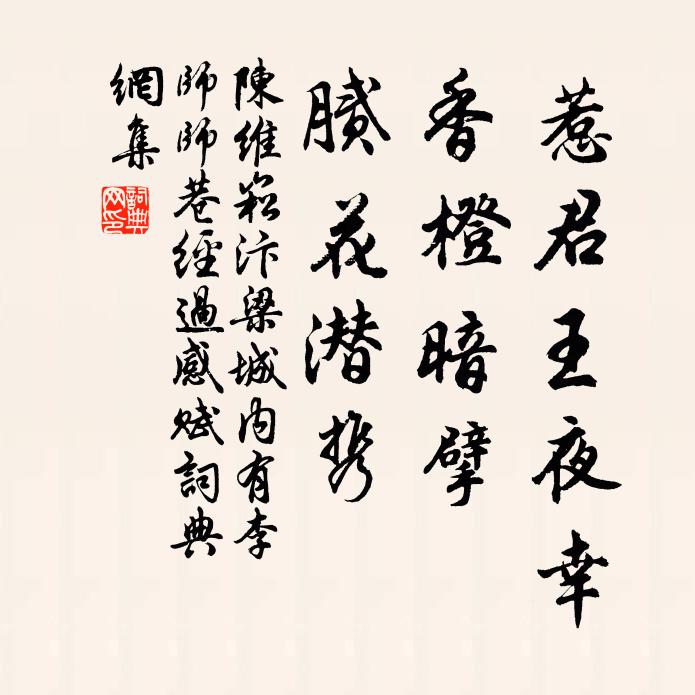 惹君王夜幸
香橙暗擘
賸花潜携
陳維崧汴梁城内有李
師師巷經過感賦詞典
網集
詞典網印